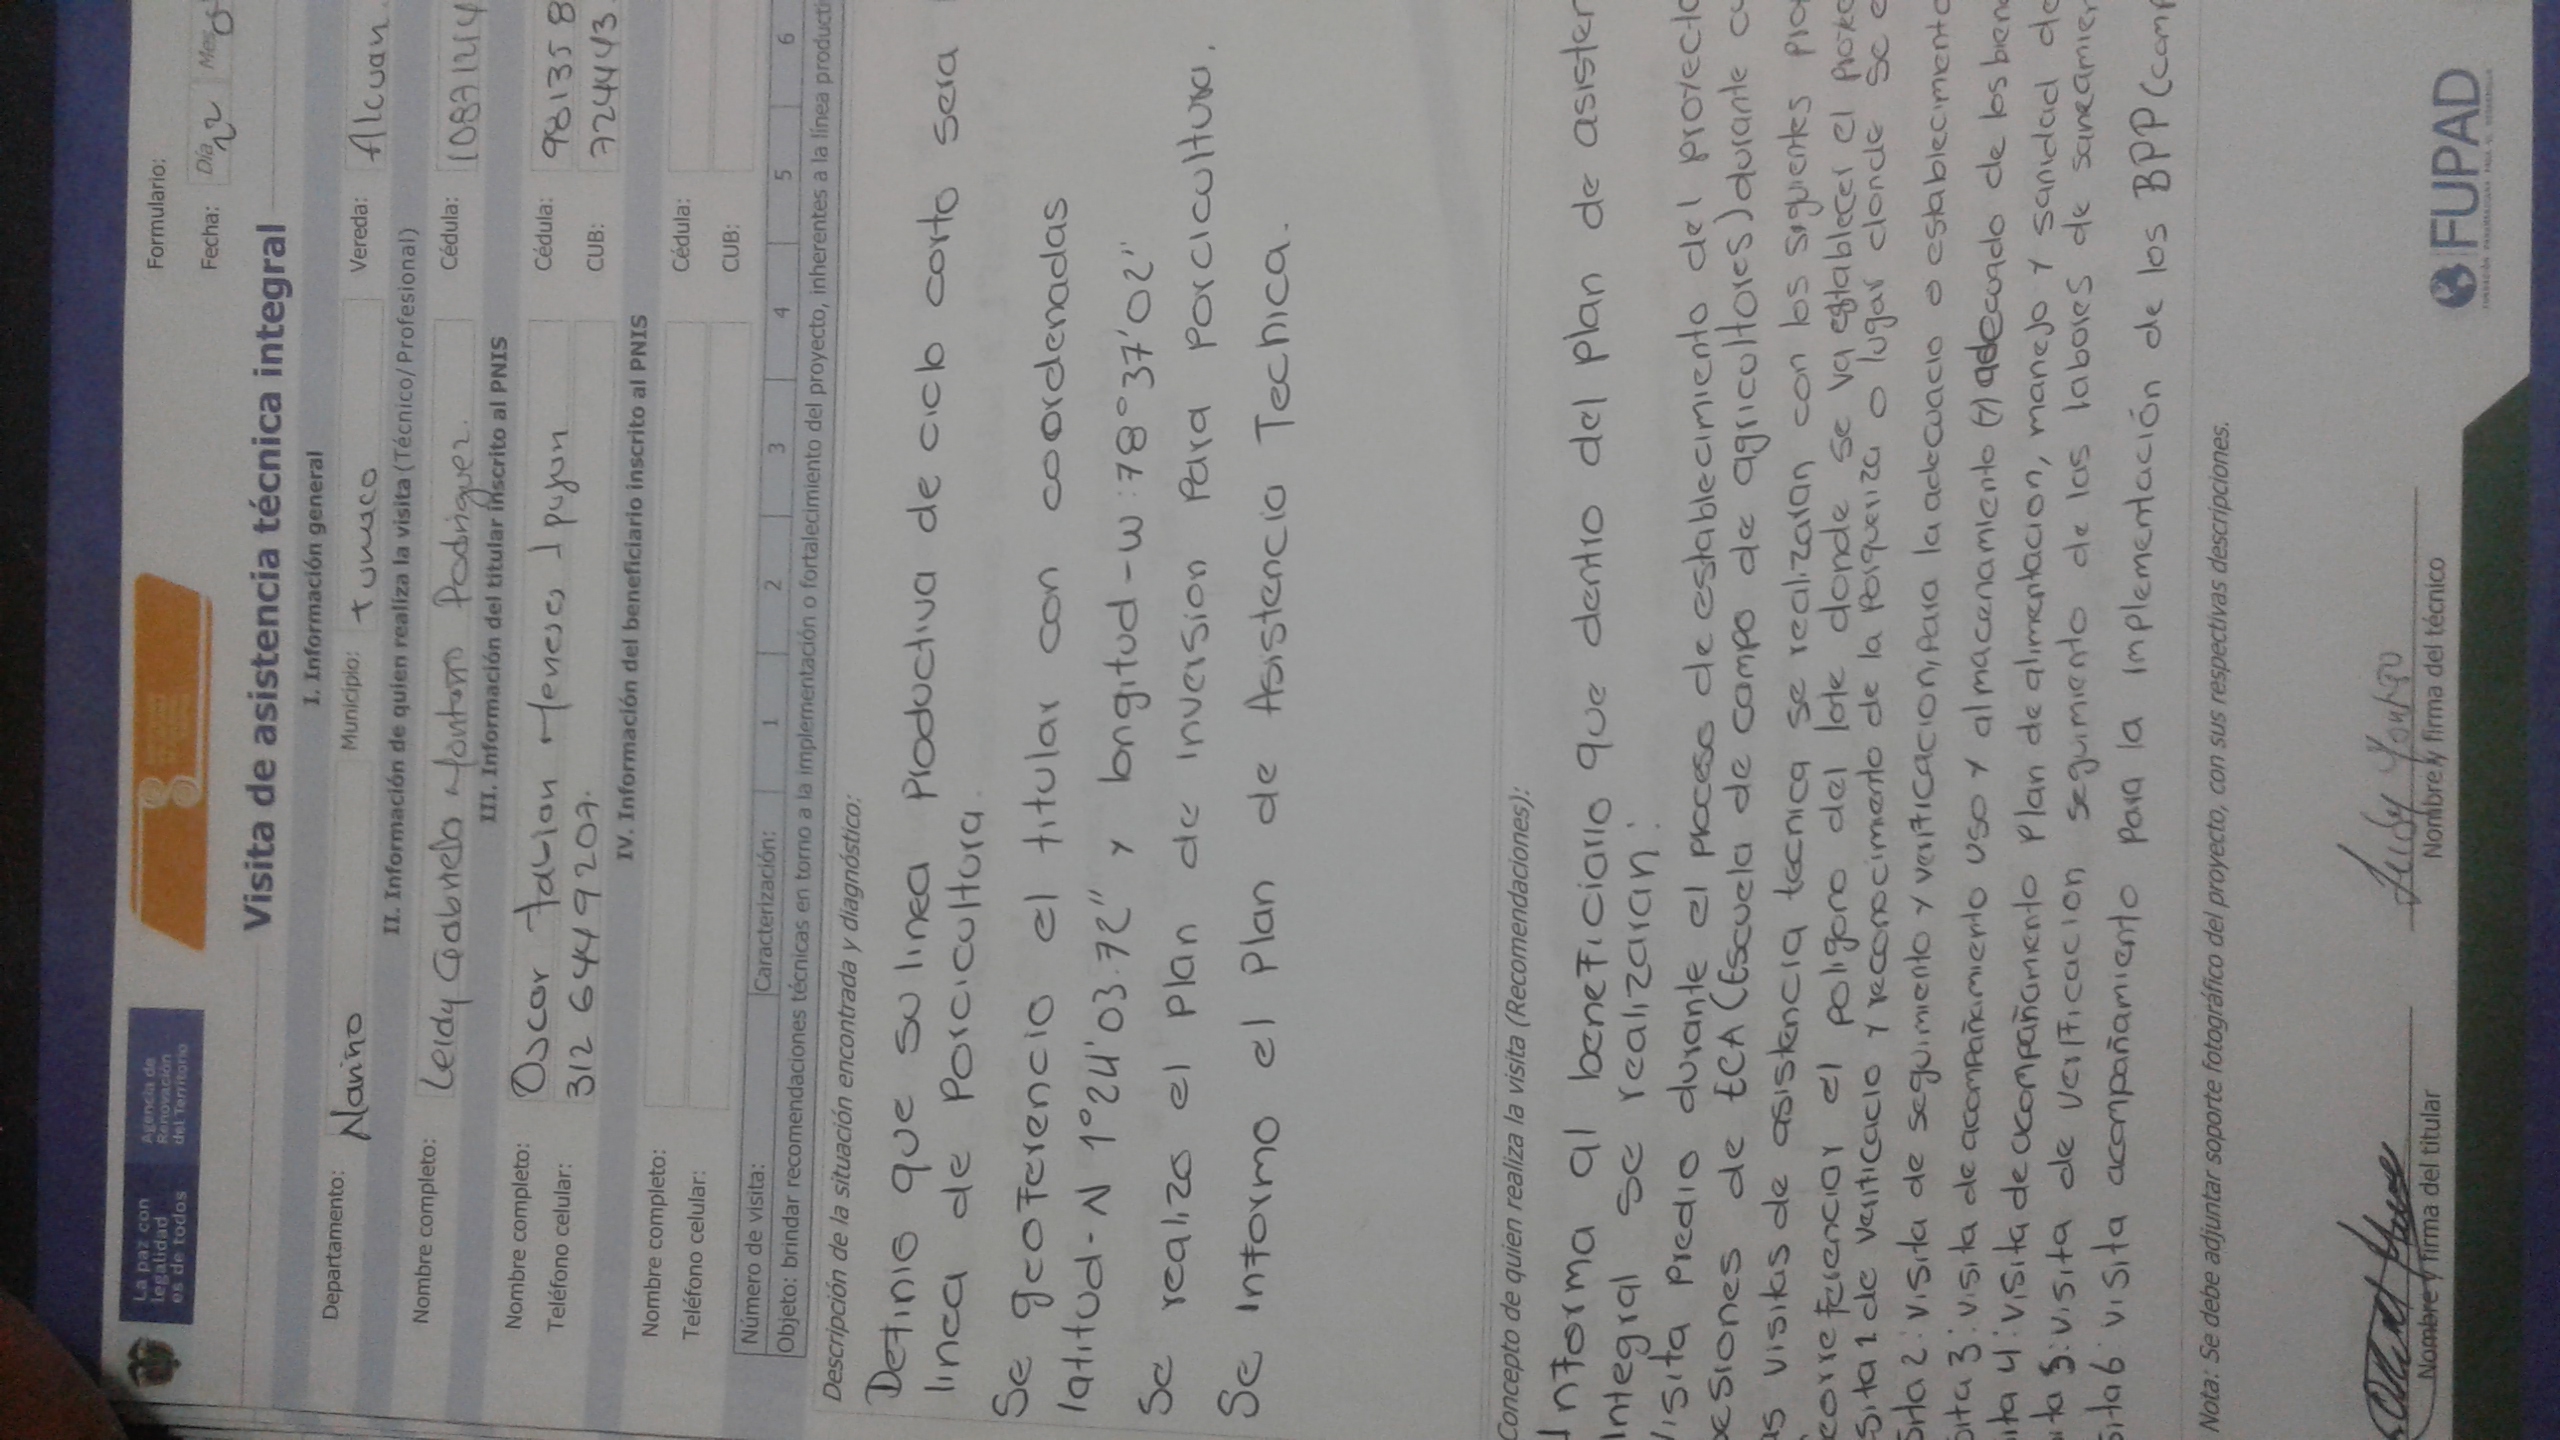 La paz con
legalidad
es de todos
Agencia de
Renovación
del Territorio
Formulario:
Fecha: Día 22 Mes
Visita de asistencia técnica integral
I. Información general
Departamento: Nariño Municipio: tumaco Vereda: Alcuan
II. Información de quien realiza la visita (Técnico/ Profesional)
Nombre completo: Leidy Gabriela Montaño Rodriguez. Cédula: 10871214
III. Información del titular inscrito al PNIS
Nombre completo: Oscar Meneses Cédula: 981358
Teléfono celular: 312 6449207. CUB: 7224443
IV. Información del beneficiario inscrito al PNIS
Nombre completo: Cédula:
Teléfono celular: CUB:
Número de visita: Caracterización: 1 2 3 4 5 6
Objeto: brindar recomendaciones técnicas en torno a la implementación o fortalecimiento del proyecto, inherentes a la línea producti
Descripción de la situación encontrada y diagnóstico:
Definio que su linea Productiva de ciclo corto sera
linea de Porcicultura.
Se geoferencio el titular con coordenadas
latitud-N 1°24'03.72" y longitud-w:78°37'02"
Se realizo el Plan de inversion Para Porcicultura.
Se informo el Plan de Asistencia Technica.
Concepto de quien realiza la visita (Recomendaciones):
Informa al beneficiario que dentro del plan de asisten
Integral se realizaran:
Visita Predio durante el proceso de establecimiento del proyecto
sesiones de ECA (Escuela de campo de agricultores) durante
as visitas de asistencia tecnica se realizaran con los siguientes Pro
eorreferenciar el poligono del lote donde se va establecer el proye
sita 1 de verificacio y reconocimento de la Porqueriza o lugar donde se e
sita 2: visita de seguimiento y verificacion, Para la adecuacio o establecimiento
sita 3: visita de acompañamiento uso y almacenamiento (y) adecuado de los bien
ita 4: visita de acompañamiento Plan de alimentacion, manejo y sanidad de
ita 5: visita de verificacion seguimiento de las labores de saneamien
sita 6: visita acompañamiento Para la implementación de los BPP (comp
Nota: Se debe adjuntar soporte fotográfico del proyecto, con sus respectivas descripciones.
Nombre y firma del titular
Nombre y firma del técnico
FUPAD